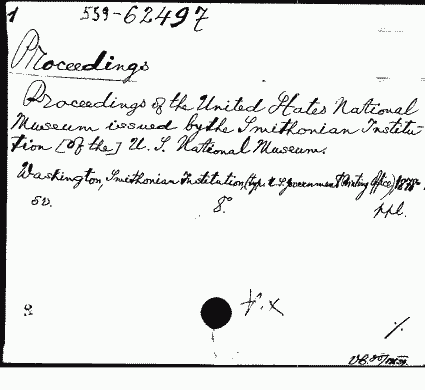 1 559-62497
Proceedings
Proceedings of the United States National
Museum issued by the Smithonian Institu-
tion [of the] U. S. National Museum.
Washington, Smithonian Institution, (typ. U. S. Government Printing Office)
5v. 8°. ppl.